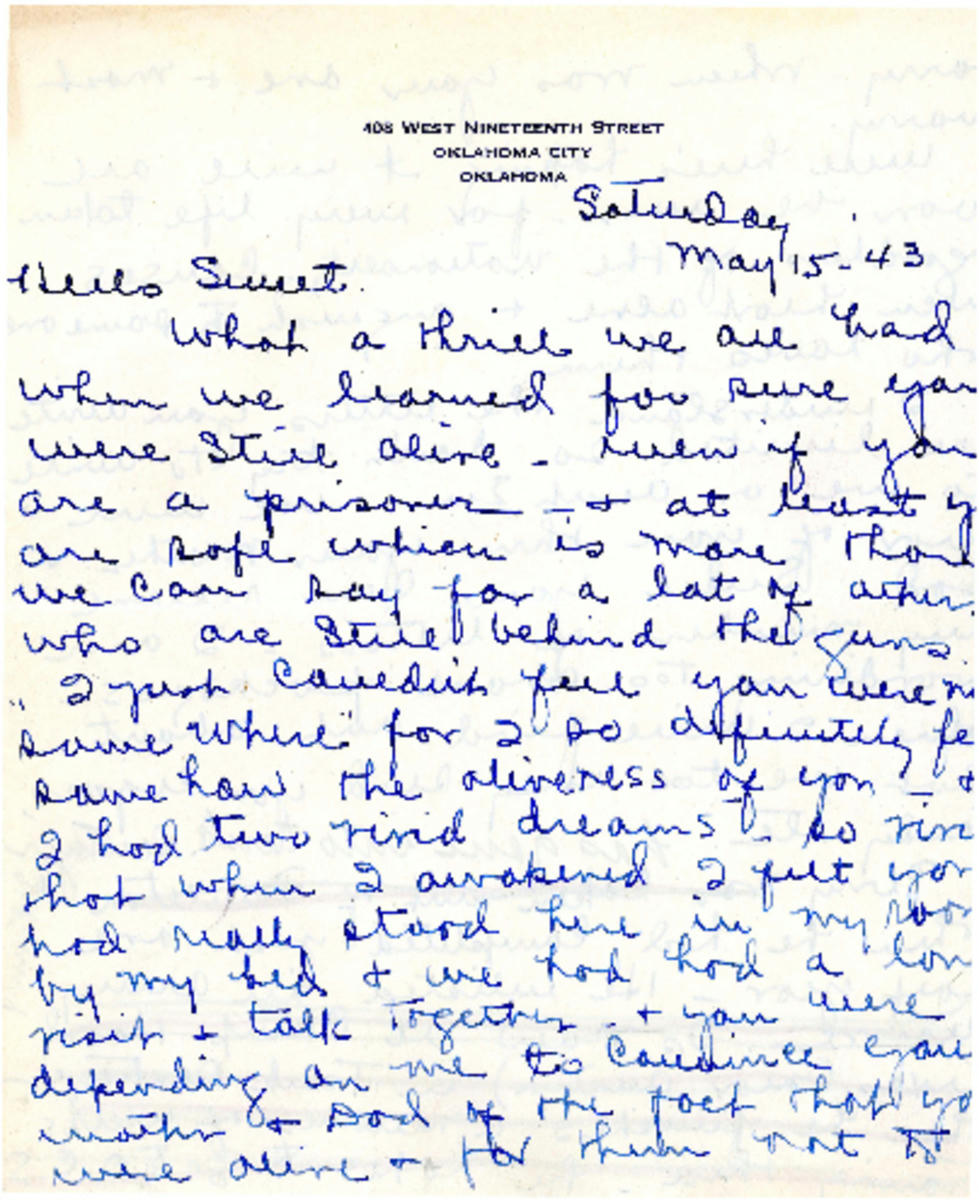 408 WEST NINETEENTH STREET
OKLAHOMA CITY
OKLAHOMA
Saturday
May 15 - 43
Hello Sweet.
What a thrill we all had
when we learned for sure you
were still alive - even if you
are a prisoner - & at least y
are safe which is more than
we can say for a lot of others
who are still behind the guns.
I just couldn't feel you were n
some where for I so definitely fe
some how the aliveness of you - &
I had two vivid dreams - so vivi
that when I awakened I felt you
had really stood here in my roo
by my bed & we had had a lon
visit & talk together - & you were
depending on me to convince you
mother & Dad of the fact that yo
were alive & for them not to